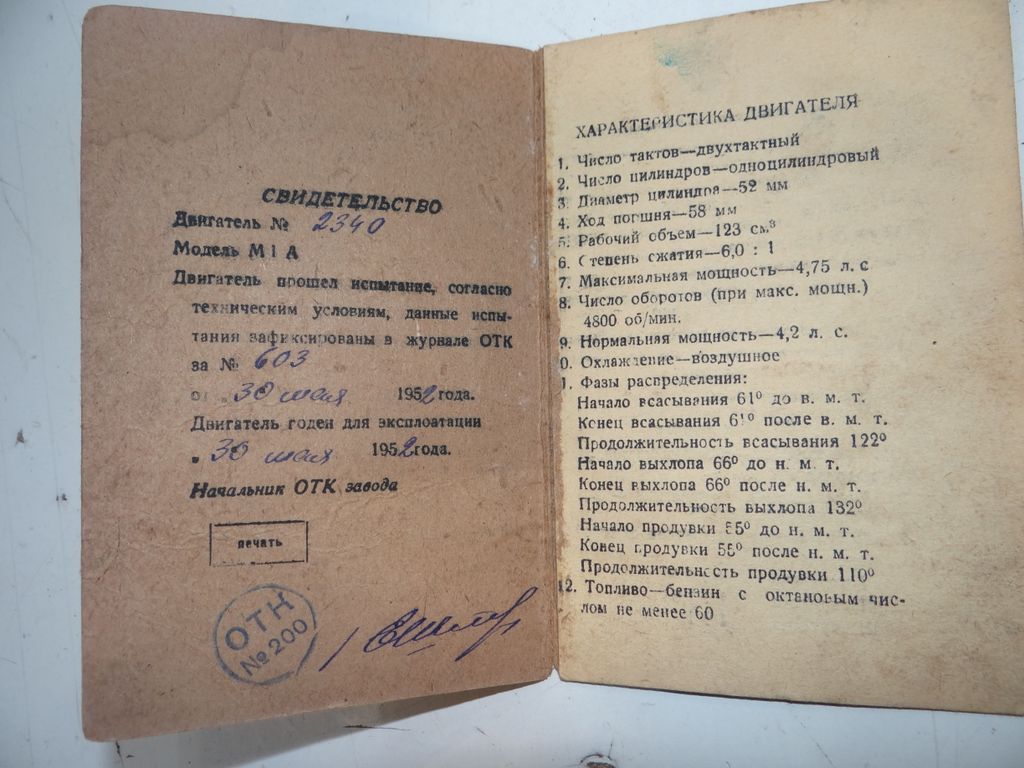 СВИДЕТЕЛЬСТВО
Двигатель № 2340
Модель М 1 А
Двигатель прошел испытание, согласно
техническим условиям, данные испы-
тания зафиксированы в журнале ОТК
за № 603
30 мая 1952 года.
Двигатель годен для эксплоатации
„ 30 мая 1952 года.
Начальник ОТК завода
печать
ОТК
№ 200
ХАРАКТЕРИСТИКА ДВИГАТЕЛЯ
1. Число тактов—двухтактный
2. Число цилиндров—одноцилиндровый
3. Диаметр цилиндра—52 мм
4. Ход поршня—58 мм
5. Рабочий объем—123 см³
6. Степень сжатия—6,0 : 1
7. Максимальная мощность—4,75 л. с
8. Число оборотов (при макс. мощн.)
4800 об/мин.
9. Нормальная мощность—4,2 л. с.
0. Охлаждение—воздушное
1. Фазы распределения:
Начало всасывания 61° до в. м. т.
Конец всасывания 61° после в. м. т.
Продолжительность всасывания 122°
Начало выхлопа 66° до н. м. т.
Конец выхлопа 66° после н. м. т.
Продолжительность выхлопа 132°
Начало продувки 55° до н. м. т.
Конец продувки 55° после н. м. т.
Продолжительность продувки 110°
12. Топливо—бензин с октановым чис-
лом не менее 60